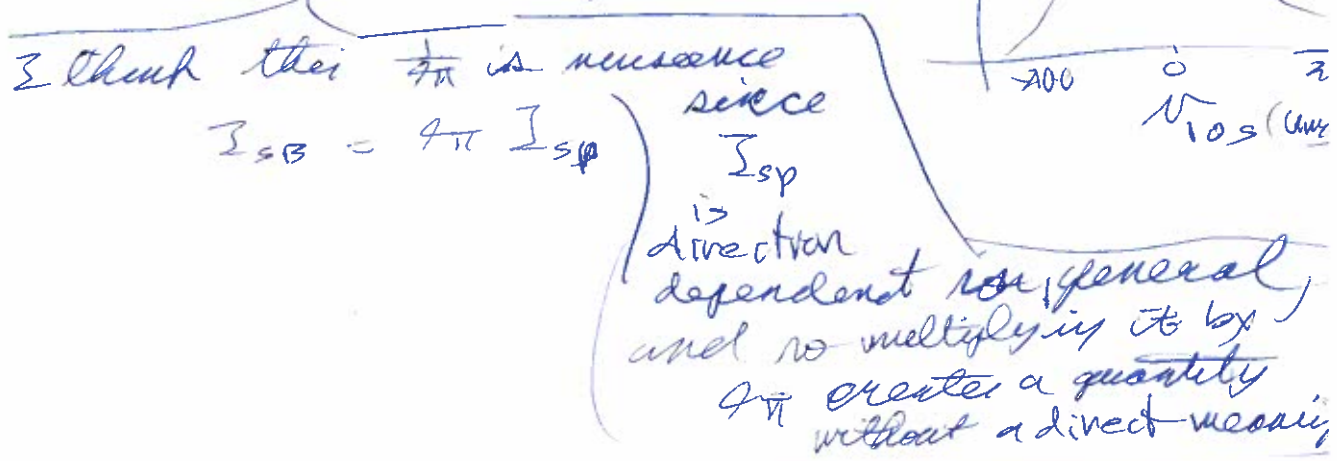 I think this 1/4π is nuisance
since
I_SB = 4π I_sp
I_sp
is
direction
dependent in general,
and so multiplying it by
4π creates a quantity
without a direct meaning
-200 0 2
V_los (km